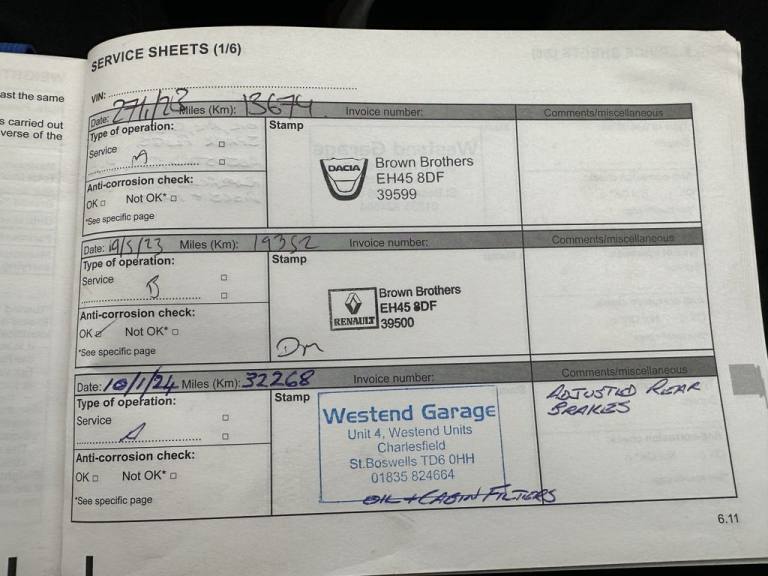 SERVICE SHEETS (1/6)
VIN:
ast the same
s carried out
verse of the
Date: 27/1/23 Miles (Km): 13674 Invoice number: Comments/miscellaneous
Type of operation:
Stamp
Service
A
Anti-corrosion check:
OK □ Not OK* □
*See specific page
DACIA
Brown Brothers
EH45 8DF
39599
Date: 19/5/23 Miles (Km): 19352 Invoice number: Comments/miscellaneous
Type of operation:
Stamp
Service
B
Anti-corrosion check:
OK ✓ Not OK* □
*See specific page
RENAULT
Brown Brothers
EH45 8DF
39500
Date: 10/1/24 Miles (Km): 32268 Invoice number: Comments/miscellaneous
Type of operation:
Stamp
Service
A
Anti-corrosion check:
OK □ Not OK* □
*See specific page
Westend Garage
Unit 4, Westend Units
Charlesfield
St.Boswells TD6 0HH
01835 824664
OIL + CABIN FILTERS
ADJUSTED REAR
BRAKES
6.11